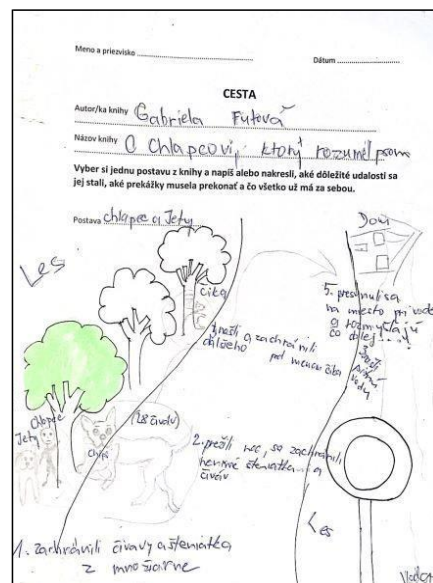 Meno a priezvisko
Dátum
CESTA
Autor/ka knihy Gabriela Futová
Názov knihy O Chlapcovi, ktorý rozumel psom
Vyber si jednu postavu z knihy a napíš alebo nakresli, aké dôležité udalosti sa
jej stali, aké prekážky musela prekonať a čo všetko už má za sebou.
Postava chlapec a Jety
Les
Dom
Čika
3. našli a zachránili
ďalšieho psa
menom
5. presunuli sa
na miesto pri vode
a rozmýšľajú
čo ďalej....
vody
Chlapec
Jety
(28 čiváv)
2. prešli noc, so zachránili
šteniatka a
čiváv
Les
1. zachránili čivavy a šteniatka
z množiarne